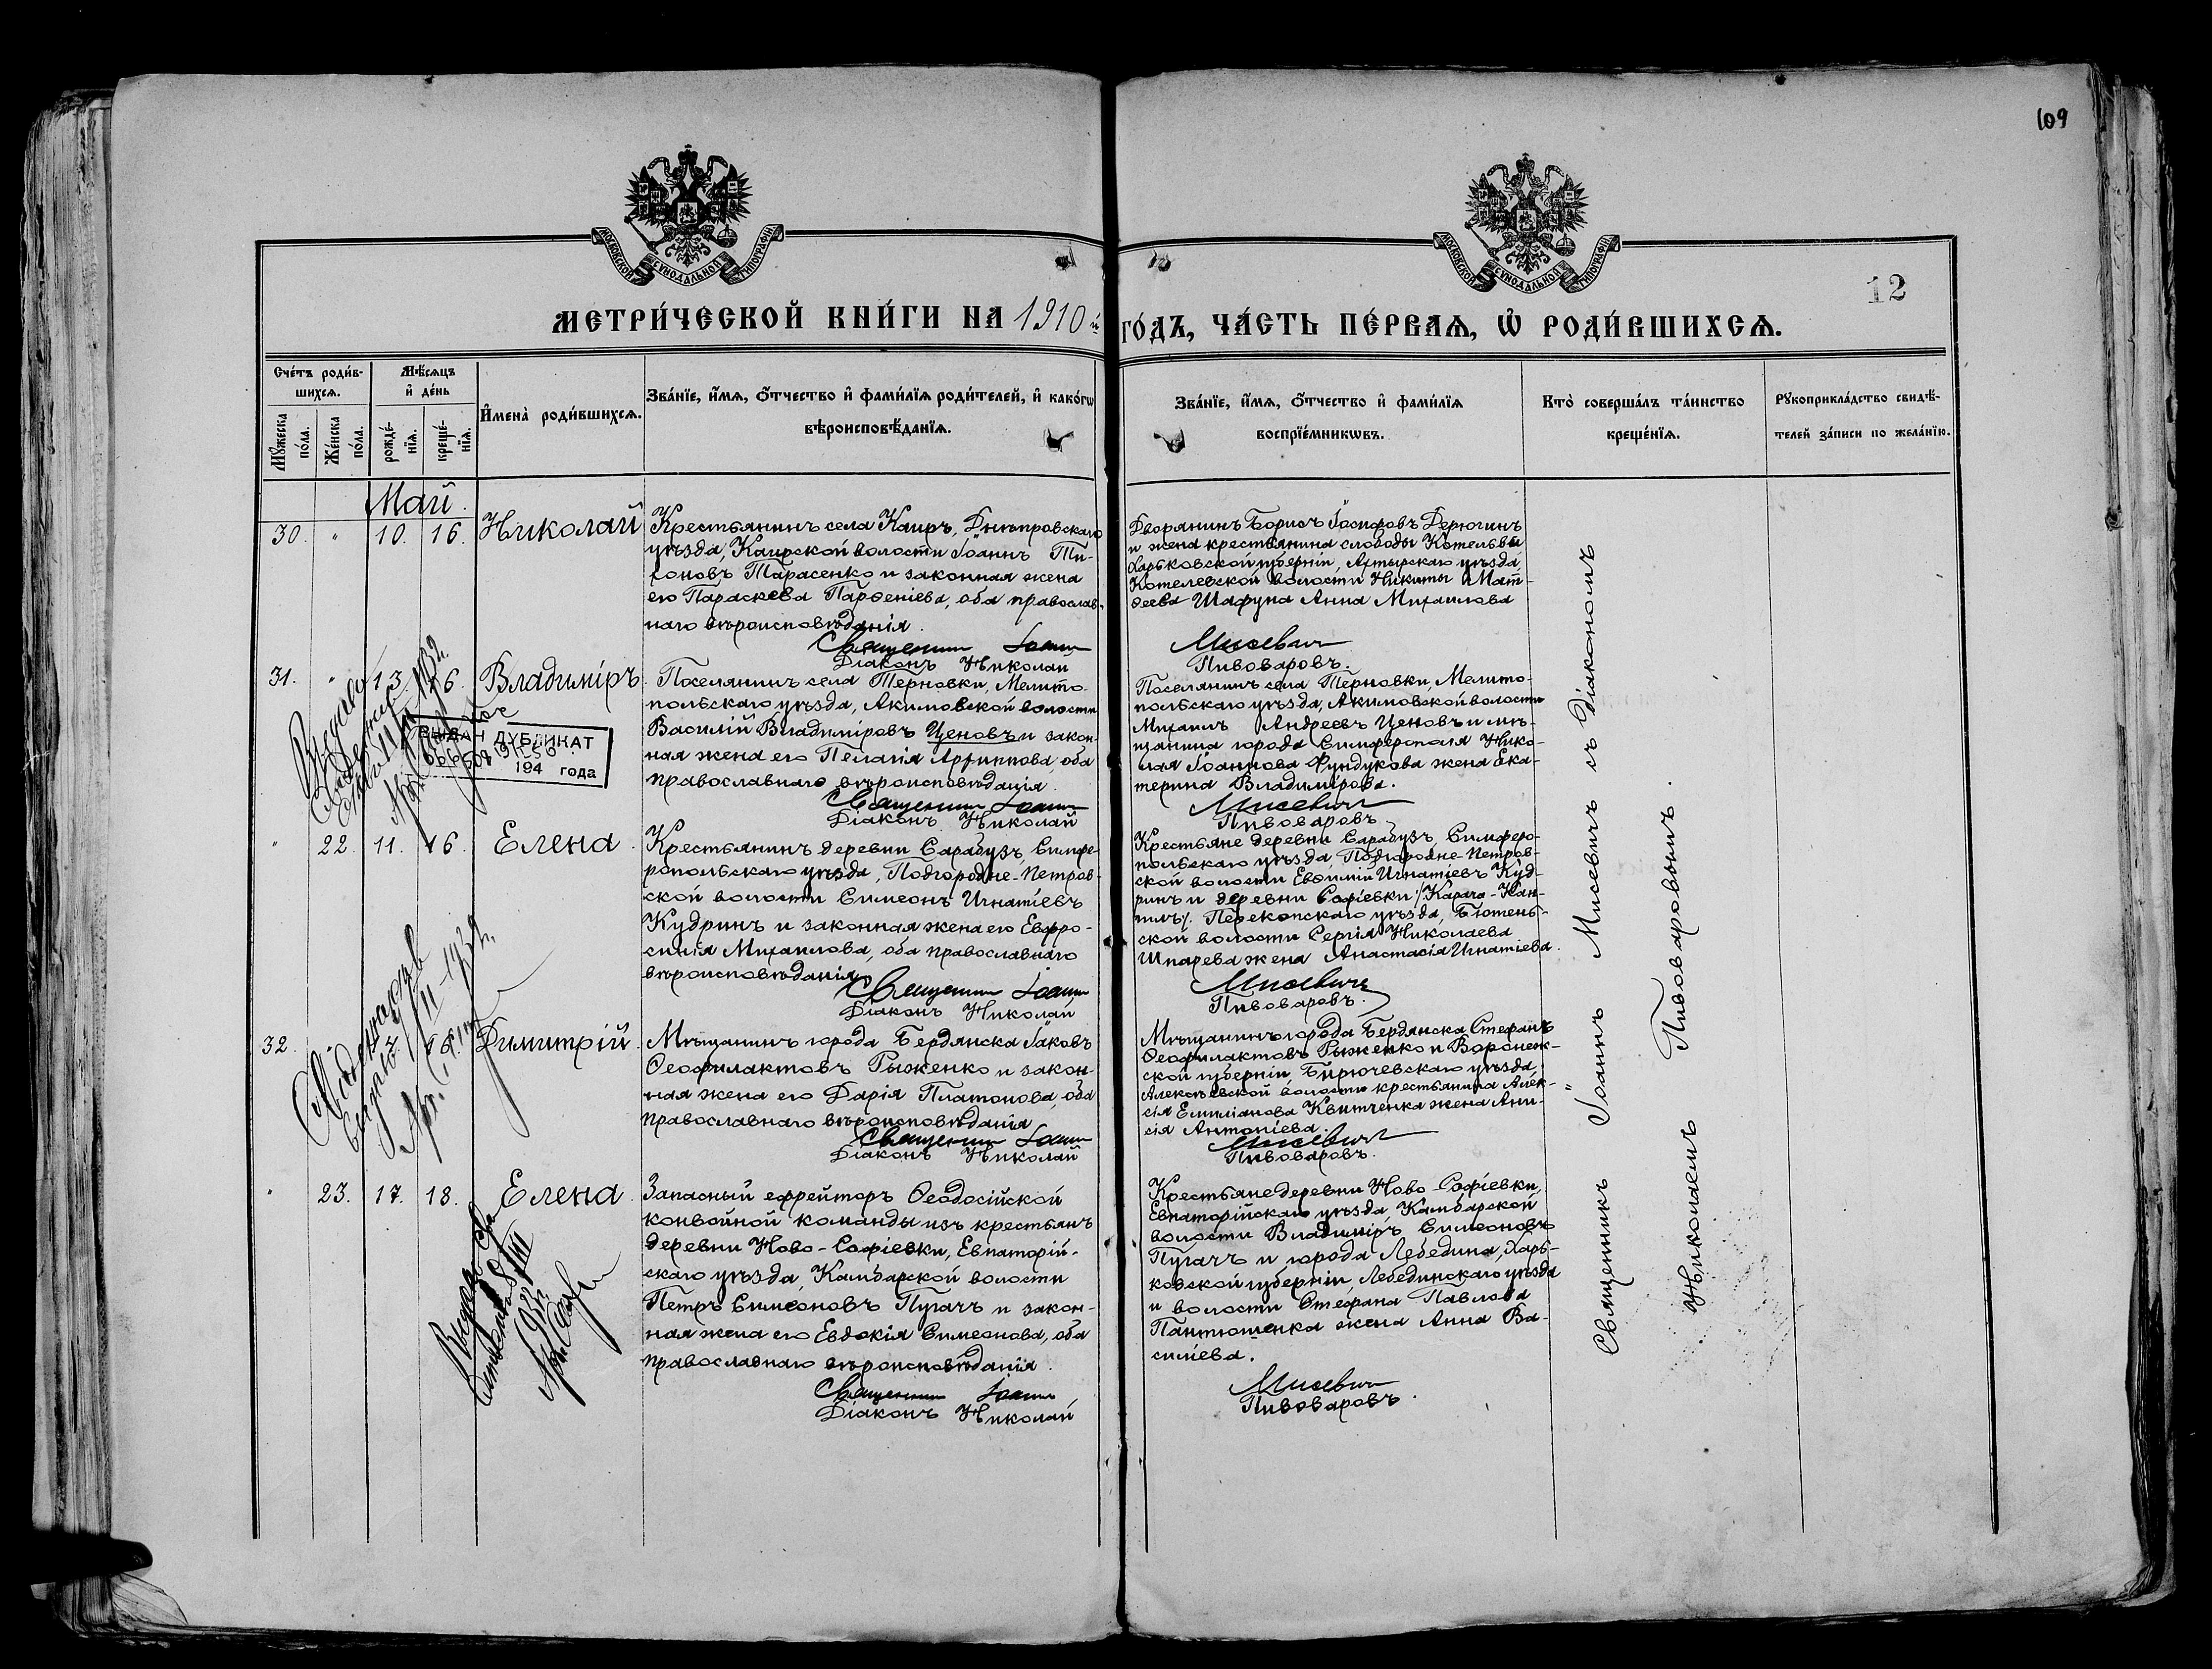 109
МОСКОВСКОЙ СѴНОДАЛЬНОЙ ТИПОГРАФІИ
МОСКОВСКОЙ СѴНОДАЛЬНОЙ ТИПОГРАФІИ
12
МЕТРИ́ЧЕСКОЙ КНИ́ГИ НА 1910 й
ГО́ДЪ, ЧА́СТЬ ПЕ́РВАѦ, Ѡ҆ РОДИ́ВШИХСѦ.
Сче́тъ роди́в-
шихсѧ.
Мѣ́сѧцъ
и҆ де́нь
Мꙋ́жеска
по́ла.
Же́нска
по́ла.
рожде́-
нїѧ.
креще́-
нїѧ.
И҆мена̀ роди́вшихсѧ.
Зва́нїе, и҆́мѧ, ѻ҆́тчество и҆ фами́лїѧ роди́телей, и҆ како́гѡ
вѣроисповѣ́данїѧ.
Зва́нїе, и҆́мѧ, ѻ҆́тчество и҆ фами́лїѧ
воспрїе́мникѡвъ.
Кто̀ соверша́лъ та́инство
креще́нїѧ.
Рꙋкоприкла́дство свидѣ́-
телей за́писи по жела́нїю.
Май.
30. " 10. 16. Николай
Крестьянинъ села Каиръ, Днѣпровскаго
уѣзда, Каирской волости Іоаннъ Ти-
хоновъ Тарасенко и законная жена
его Параскева Парѳеніева, оба православ-
наго вѣроисповѣданія.
Священникъ Іоаннъ
Діаконъ Николай
Дворянинъ Борисъ Іосифовъ Дерюгинъ
и жена крестьянина слободы Котельвы
Харьковской губерніи, Ахтырскаго уѣзда,
Котелевской волости Никиты Мат-
ѳеева Шафуна Анна Михаилова
Мисевичъ
Пивоваровъ.
31. " 13. 16. Владиміръ.
Поселянинъ села Терновки, Мелито-
польскаго уѣзда, Акимовской волости
Василій Владиміровъ Ценовъ и закон-
ная жена его Пелагія Архиппова, оба
православнаго вѣроисповѣданія.
Священникъ Іоаннъ
Діаконъ Николай
ВЫДАН ДУБЛИКАТ
194 года
Поселянинъ села Терновки, Мелито-
польскаго уѣзда, Акимовской волости
Михаилъ Андреевъ Ценовъ и мѣ-
щанина города Симферополя Нико-
лая Іоаннова Фундукова жена Ека-
терина Владимірова.
Мисевичъ
Пивоваровъ
" 22. 11. 16. Елена.
Крестьянинъ деревни Сарабузъ, Симфе-
ропольскаго уѣзда, Подгородне-Петров-
ской волости Симеонъ Игнатіевъ
Кудринъ и законная жена его Евфро-
синія Михаилова, оба православнаго
вѣроисповѣданія
Священникъ Іоаннъ
Діаконъ Николай
Крестьяне деревни Сарабузъ, Симферо-
польскаго уѣзда, Подгородне-Петров-
ской волости Евѳимій Игнатіевъ Куд-
ринъ и деревни Софіевки /Карача-Кан-
гилъ/. Перекопскаго уѣзда, Бютень-
ской волости Сергія Николаева
Шпарева жена Анастасія Игнатіева.
Мисевичъ
Пивоваровъ.
32. Димитрій.
Мѣщанинъ города Бердянска Іаковъ
Ѳеофилактовъ Рыженко и закон-
ная жена его Дарія Платонова, оба
православнаго вѣроисповѣданія
Священникъ Іоаннъ
Діаконъ Николай
Мѣщанинъ города Бердянска Стефанъ
Ѳеофилактовъ Рыженко и Воронеж-
ской губерніи, Бирючевскаго уѣзда,
Алексѣевской волости крестьянина Алек-
сія Емиліанова Квитченка жена Ани-
сія Антоніева.
Мисевичъ
Пивоваровъ.
" 23. 17. 18. Елена.
Запасный ефрейторъ Ѳеодосійской
конвойной команды изъ крестьянъ
деревни Ново-Софіевки, Евпаторій-
скаго уѣзда, Камбарской волости
Петръ Симеоновъ Пугачъ и закон-
ная жена его Евдокія Симеонова, оба
православнаго вѣроисповѣданія.
Священникъ Іоаннъ
Діаконъ Николай
Крестьяне деревни Ново-Софіевки,
Евпаторійскаго уѣзда, Камбарской
волости Владиміръ Симеоновъ
Пугачъ и города Лебедина, Харь-
ковской губерніи, Лебединскаго уѣзда
и волости Стефана Павлова
Пантюшенка жена Анна Ва-
силіева.
Мисевичъ
Пивоваровъ.
Священникъ Іоаннъ Мисевичъ съ Діакономъ
Николаемъ Пивоваровымъ.